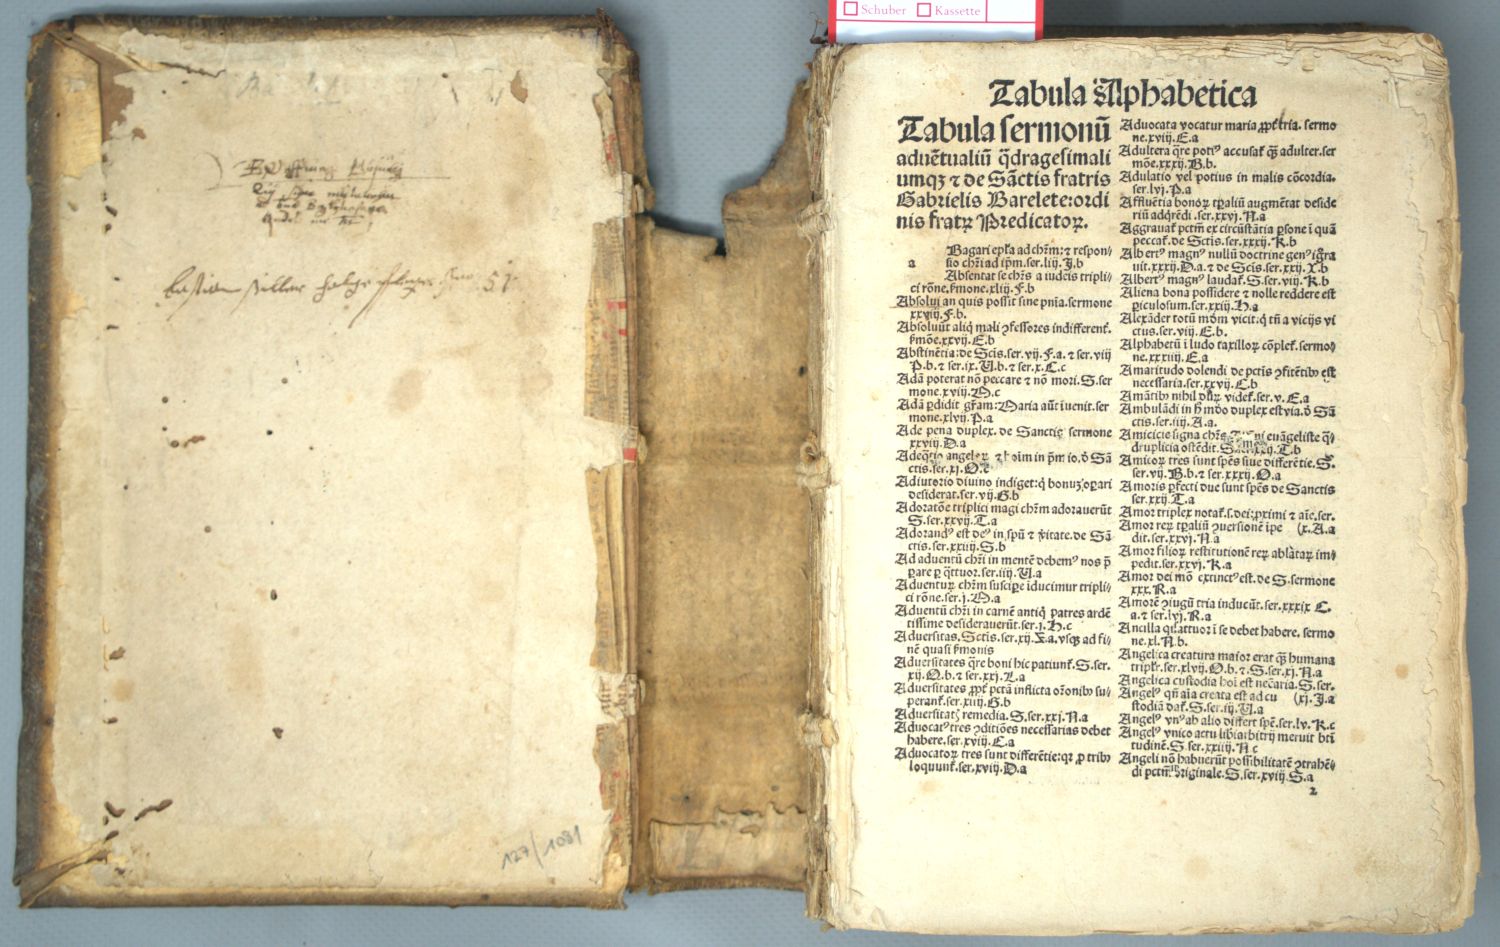 Schuber Kassette
127/1081
Tabula Alphabetica
Tabula sermonū
aduētualiū q̄dragesimali
umqꝫ ⁊ de Sāctis fratris
Gabrielis Barelete: ordi
nis fratꝝ Predicatoꝝ.
a
Bagari ep̄la ad chr̄m: ⁊ respon⸗
sio chr̄i ad ip̄m.ser.liij.J.b
Absentat se chr̄s a iudeis tripli⸗
ci rōne.s̄mone.xliij.F.b
Absolui an quis possit sine pn̄ia.sermone
xxviij.F.b.
Absoluūt aliq̄ mali ꝯfessores indifferent̄.
s̄mōe.xxvij.E.b
Abstinētia: de Scīs.ser.vij.F.a. ⁊ ser.viij
P.b. ⁊ ser.ix.U.b. ⁊ ser.x.C.c
Adā poterat nō peccare ⁊ nō mori.S.ser
mone.xviij.M.c
Adā ꝑdidit gr̄am: Maria aūt īuenit.ser
mone.xlvij.P.a
Ade pena duplex. de Sanctis sermone
xxviij.D.a
ctis.ser.xj.O.c
Adiutorio diuino indiget: q̄ bonuꝫ oꝑari
desiderat.ser.vij.G.b
Adoratōe triplici magi chr̄m adorauerūt
S.ser.xxvij.T.a
Adorandꝰ est deꝰ in sp̄u ⁊ v̄itate.de Sā
ctis.ser.xxiiij.S.b
Ad aduentū chr̄i in mentē debemꝰ nos p̄
ꝑare ꝑ q̄ttuor.ser.iiij.U.a
Aduentuꝝ chr̄m suscipe īducimur tripli⸗
ci rōne.ser.j.M.a
Aduentū chr̄i in carnē antiq̄ patres ardē
tissime desiderauerūt.ser.j.H.c
Aduersitas.Sctīs.ser.xij.X.a.vsqꝫ ad fi⸗
nē quasi s̄monis
Aduersitates q̄re boni hic patiunt̄.S.ser.
xij.O.b. ⁊ ser.xxj.L.a
Aduersitates ꝓpt̄ pctā inflicta orōnibꝰ su⸗
perant̄.ser.xiiij.G.b
Aduersitatꝫ remedia.S.ser.xxj.N.a
Aduocatꝰ tres ꝯditiōes necessarias debet
habere.ser.xviij.C.a
Aduocatoꝝ tres sunt differētie: qꝛ ꝓ tribꝰ
loquunt̄.ser.xviij.D.a
Aduocata vocatur maria ꝓpt̄ tria. sermo
ne.xviij.E.a
Adultera q̄re potiꝰ accusat̄ q̄ꝫ adulter.ser
mōe.xxxij.B.b.
Adulatio vel potius in malis cōcordia.
ser.lvj.P.a
Affluētia honoꝝ tꝑaliū augmētat deside
riū adq̄rēdi.ser.xxvj.N.a
Aggrauat̄ pctm̄ ex circūstātia ꝑsone ī quā
peccat̄.de Sctīs.ser.xxxij.K.b
Albertꝰ magnꝰ nullū doctrine genꝰ ig̅ra
uit.xxxij.D.a. ⁊ de Scīs.ser.xxij.Y.b
Albertꝰ magnꝰ laudat̄.S.ser.viij.K.b
Aliena bona possidere ⁊ nolle reddere est
ꝑiculosum.ser.xxiij.H.a
Alexāder totū mōm vicit: q̄ tn̄ a vicijs vi
ctus.ser.viij.E.b.
Alphabetū ī ludo taxilloꝝ cōplet̄.sermo⸗
ne.xxxiiij.E.a
Amaritudo dolendi de pctīs ꝯfitētibꝰ est
necessaria.ser.xxvij.C.b
Amātibꝰ nihil duꝝ videt̄.ser.v.E.a
Ambulādi in h̄ mōdo duplex est via. d̄ Sā
ctis.ser.iiij.A.a.
Amicoꝝ tres sunt sp̄es siue differētie.S.
ser.vij.B.b. ⁊ ser.xxxij.O.a
Amoris ꝑfecti due sunt sp̄es de Sanctis
ser.xxij.T.a
Amor triplex notat̄.s.dei: ꝓximi ⁊ aīe.ser.
Amor reꝝ tꝑaliū ꝯuersionē īpe (x.A.a
dit.ser.xxvj.N.a
Amor filioꝝ restitutionē reꝝ ablataꝝ im⸗
pedit.ser.xxvj.K.a
Amor dei mō extinctꝰ est.de S.sermone
xxx.R.a
Amorē ꝯiugū tria inducūt.ser.xxxix C.
a. ⁊ ser.lvj.R.a
Ancilla quattuor ī se debet habere. sermo
ne.xl.N.b.
Angelica creatura maior erat q̄ꝫ humana
triplr̄.ser.xlvij.O.b. ⁊ S.ser.xj.N.a
Angelica custodia hoī est necāria.S.ser.
Angelꝰ qn̄ aīa creata est ad cu (xj.J.a
stodiā dat̄.S.ser.iij.U.a
Angelꝰ vnꝰ ab alio differt sp̄e.ser.lv.K.c
Angelꝰ vnico actu liberi arbitrij meruit bt̄i
tudinē.S.ser.xxiiij.N c
Angeli nō habuerūt possibilitatē ꝯtrahē⸗
di pctm̄ originale.S.ser.xviij.S.a
2